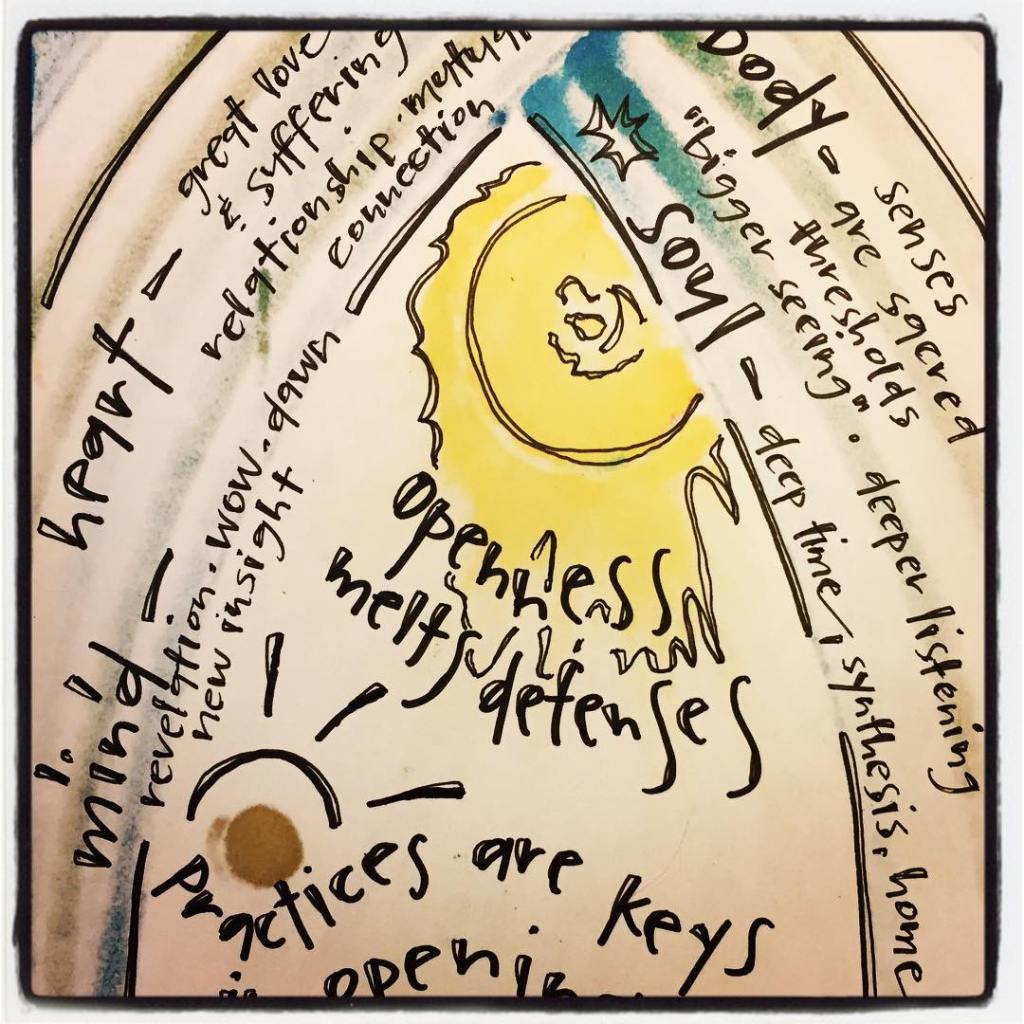 great love
& suffering
relationship.
connection
heart —
revelation. wow. dawn
new insight
mind —
Body - senses
are sacred
thresholds
"bigger seeing". deeper listening
Soul - deep time, synthesis, home
openness
melts
defenses
practices are keys